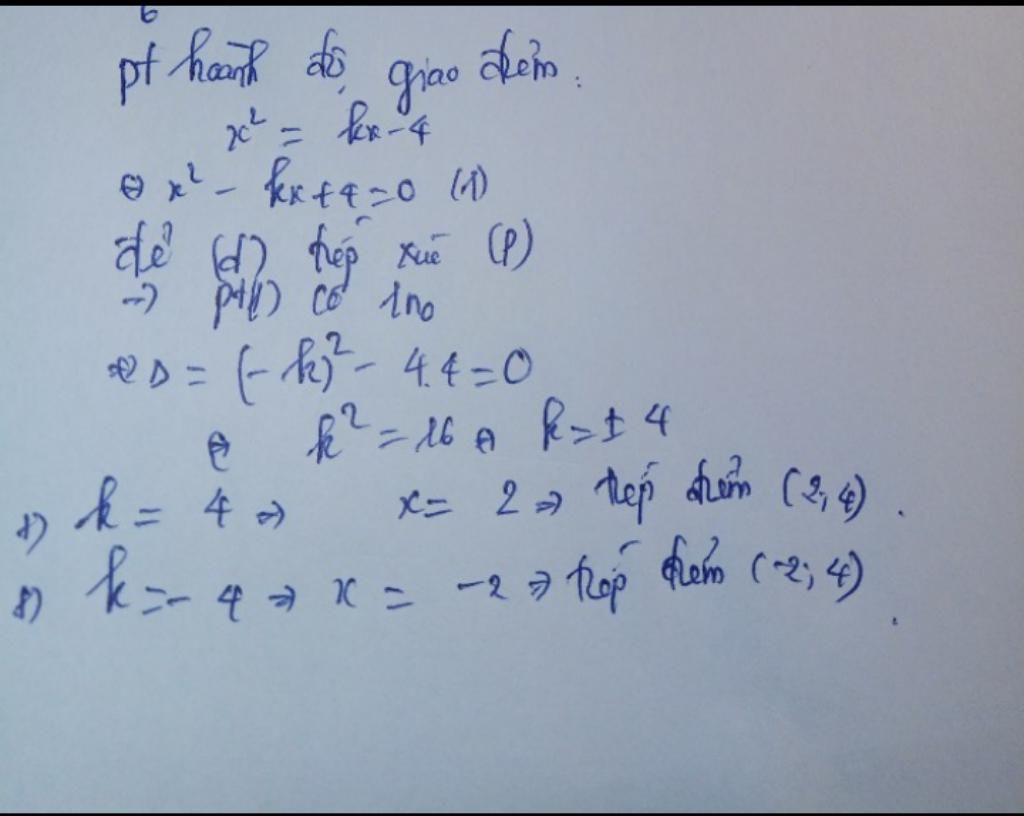 pt hoành độ giao điểm:
x² = kx - 4
⇔ x² - kx + 4 = 0 (1)
để (d) tiếp xúc (P)
→ pt(1) có 1 n₀
⇔ Δ = (-k)² - 4.4 = 0
⇔ k² = 16 ⇔ k = ± 4
k = 4 ⇒ x = 2 ⇒ tiếp điểm (2; 4).
k = - 4 ⇒ x = -2 ⇒ tiếp điểm (-2; 4).